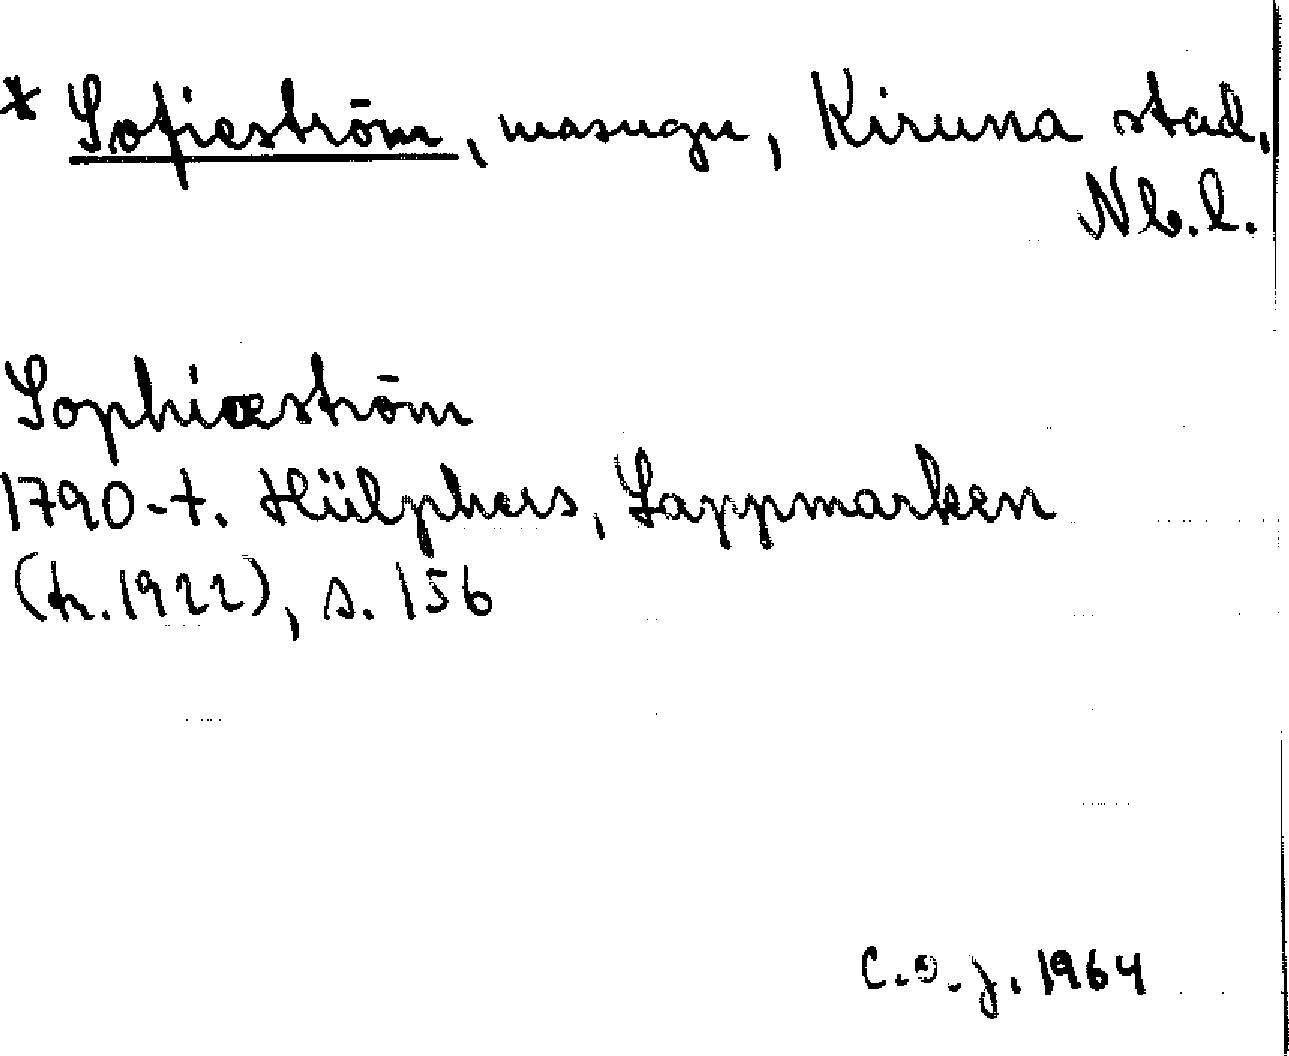 * Sofieström, masugn, Kiruna stad,
Nb.l.
Sophiæström
1790-t. Hülphers, Lappmarken
(tr. 1922), s. 156
C.O.J. 1964